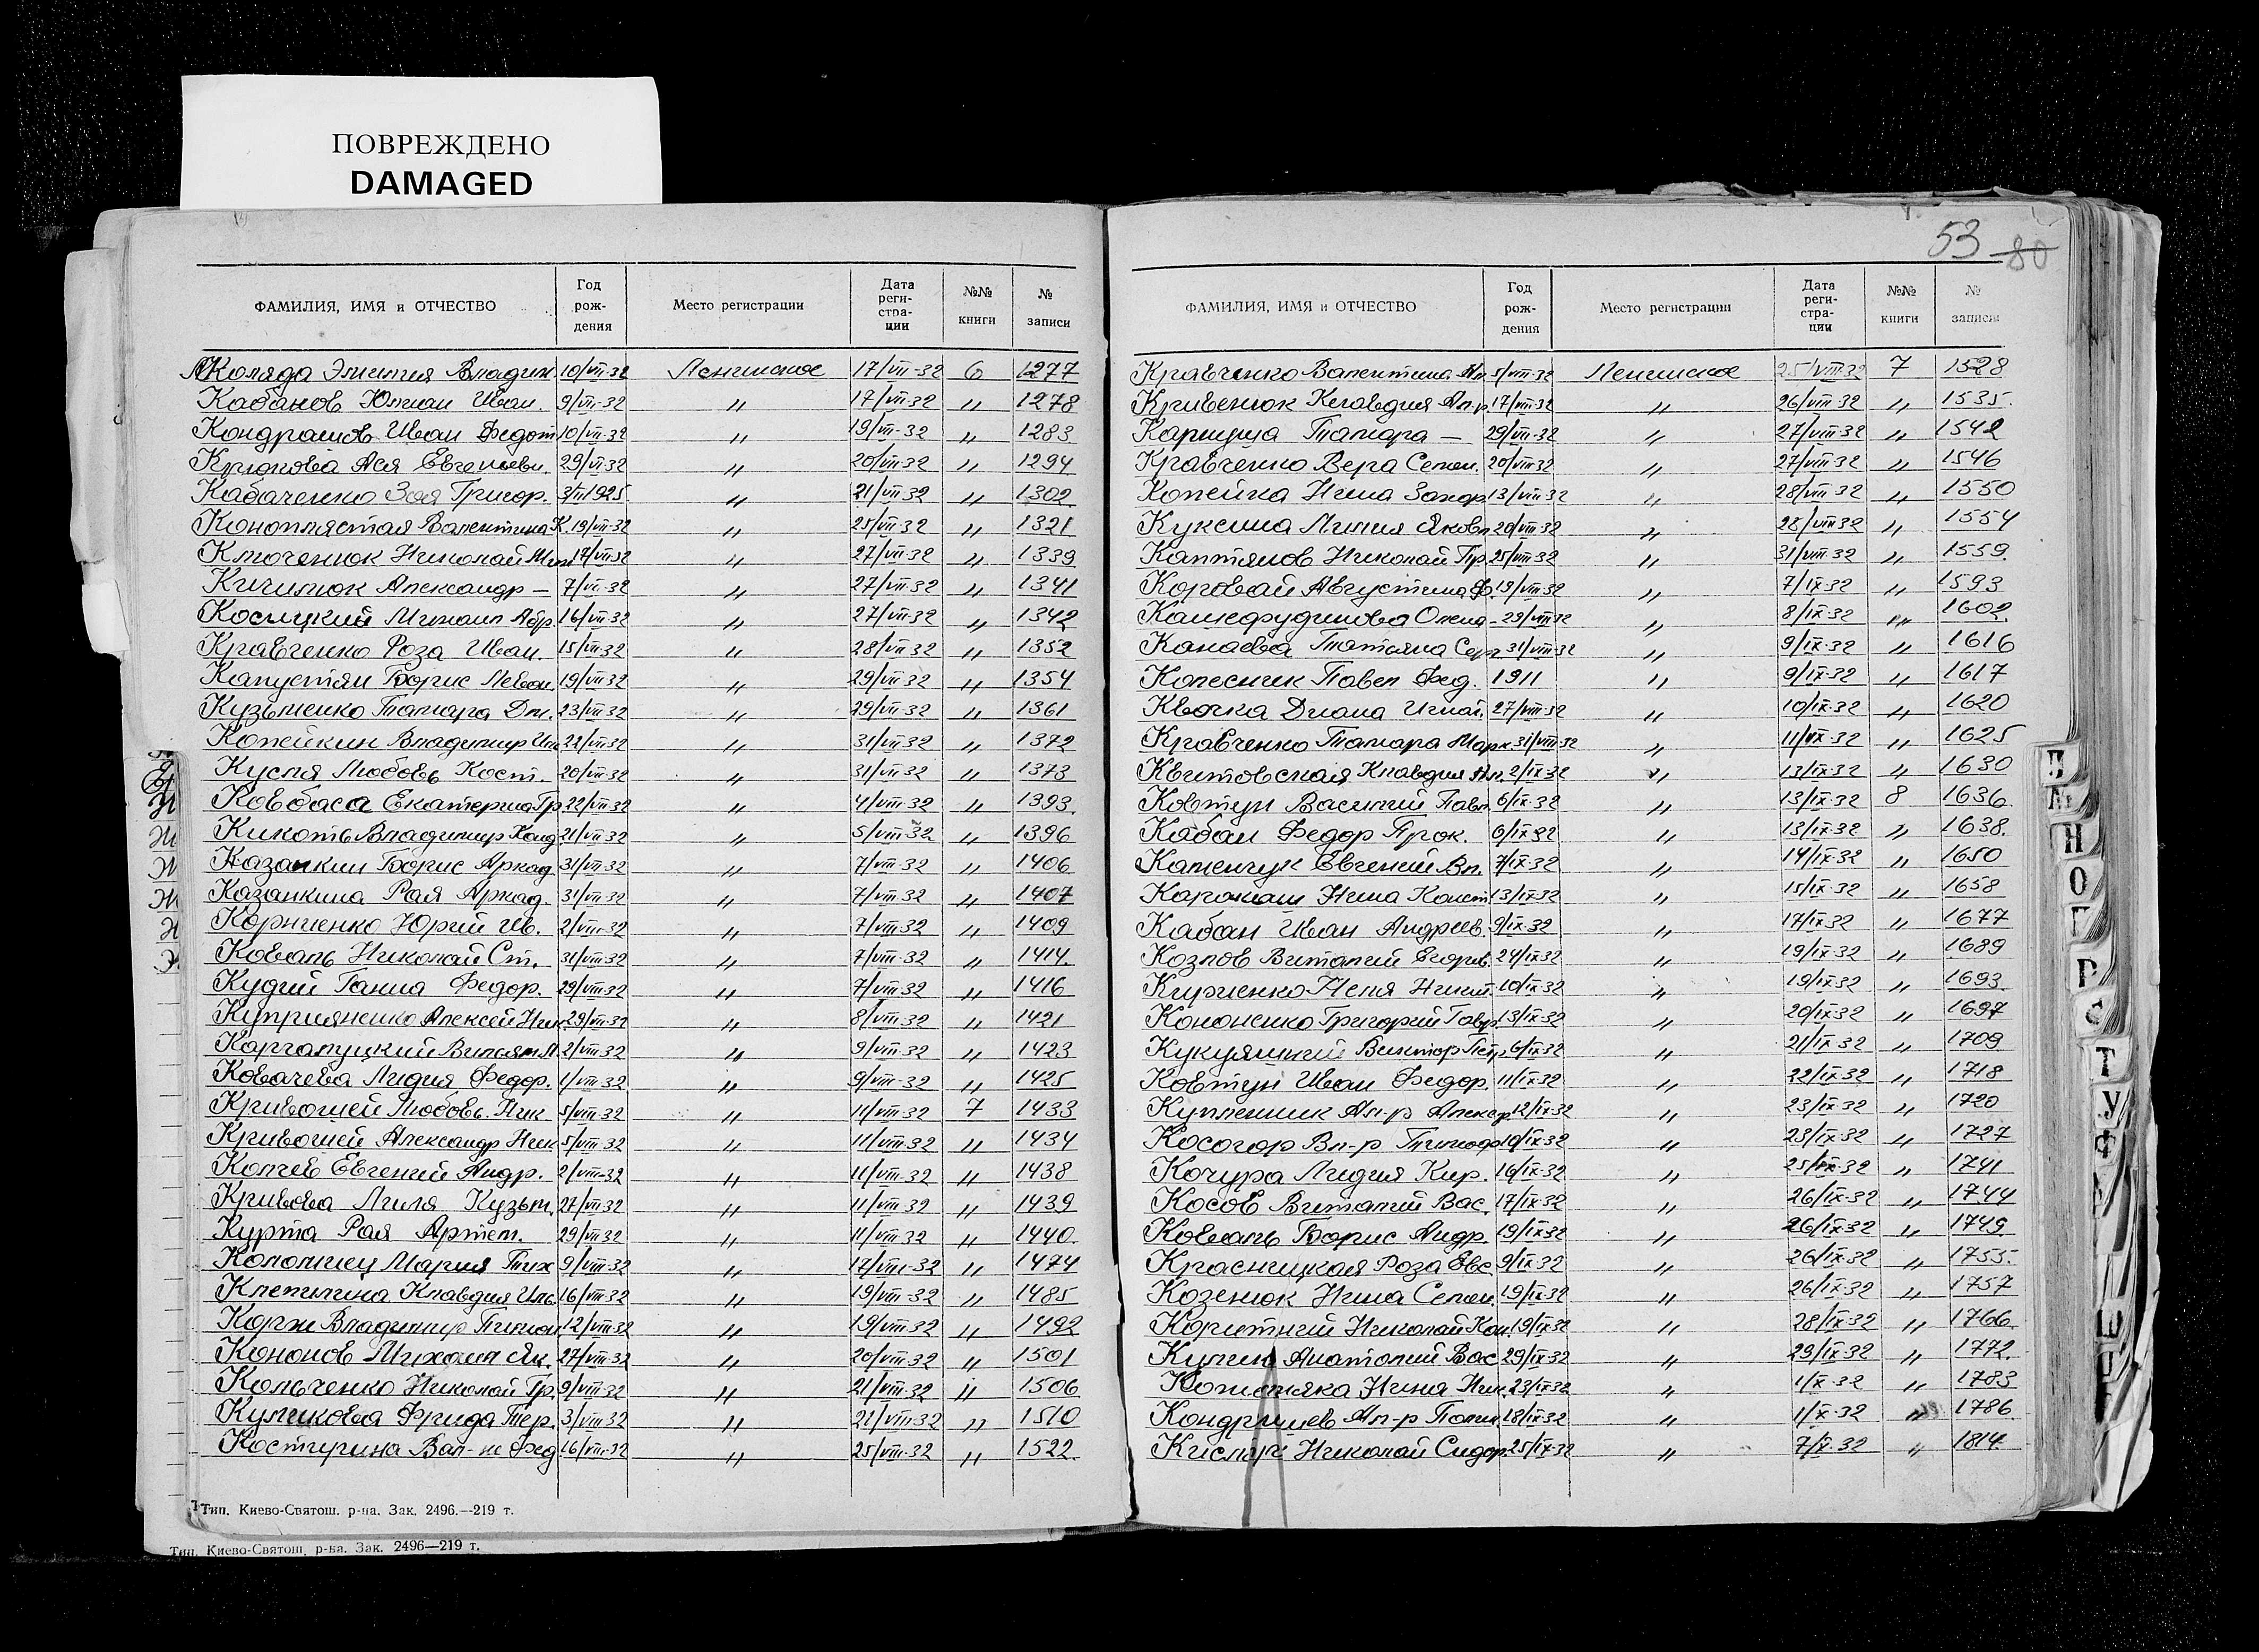 ПОВРЕЖДЕНО
DAMAGED
ФАМИЛИЯ, ИМЯ и ОТЧЕСТВО Год рож-дения Место регистрации Дата реги-стра-ции №№ книги № записи
Коляда Эмилия Владим 10/VII-32 Ленинское 17/VII-32 6 1277
Кабанов Юлиан Иван. 9/VII-32 " 17/VII-32 " 1278
Кондрашов Иван Федот 10/VII-32 " 19/VII-32 " 1283
Крюкова Ася Евгениевн. 29/VI-32 " 20/VII-32 " 1294
Кабаченко Зоя Григор. 3/II 1925 " 21/VII-32 " 1302
Коноплястая Валентина К. 19/VII-32 " 25/VII-32 " 1321
Ключенюк Николай Мит 17/VII-32 " 27/VII-32 " 1339
Кичилюк Александр — 7/VII-32 " 27/VII-32 " 1341
Косицкий Михаил Абр. 16/VII-32 " 27/VII-32 " 1342
Кравченко Роза Иван. 15/VII-32 " 28/VII-32 " 1352
Капустян Борис Леван. 19/VII-32 " 29/VII-32 " 1354
Кузьменко Тамара Дм. 23/VII-32 " 29/VII-32 " 1361
Копейкин Владимир 22/VII-32 " 31/VII-32 " 1372
Кусля Любовь Кост. 20/VII-32 " 31/VII-32 " 1373
Ковбаса Екатерина Гр. 22/VII-32 " 4/VIII-32 " 1393
Кикоть Владимир Конд 21/VII-32 " 5/VIII-32 " 1396
Казанкин Борис Аркад 31/VII-32 " 7/VIII-32 " 1406
Казанкина Рая Аркад. 31/VII-32 " 7/VIII-32 " 1407
Корниенко Юрий Ив. 2/VIII-32 " 7/VIII-32 " 1409
Коваль Николай Ст. 31/VII-32 " 7/VIII-32 " 1414
Кудий Ганна Федор. 29/VII-32 " 7/VIII-32 " 1416
Куприяненко Алексей Ник 29/VII-32 " 8/VIII-32 " 1421
Каргалуцкий Вильям Л. 2/VIII-32 " 9/VIII-32 " 1423
Ковачева Лидия Федор. 1/VIII-32 " 9/VIII-32 " 1425
Кривошей Любовь Ник 5/VIII-32 " 11/VIII-32 7 1433
Кривошей Александр Ник 5/VIII-32 " 11/VIII-32 " 1434
Копчев Евгений Андр. 2/VIII-32 " 11/VIII-32 " 1438
Кривова Лиля Кузьм. 27/VII-32 " 11/VIII-32 " 1439
Курта Рая Артем. 29/VII-32 " 11/VIII-32 " 1440
Коломиец Мария Тих 9/VIII-32 " 17/VIII-32 " 1474
Клепинина Клавдия Иль. 16/VIII-32 " 19/VIII-32 " 1485
Корж Владимир Тимон 12/VIII-32 " 19/VIII-32 " 1492
Кононов Михаил Як. 27/VIII-32 " 20/VIII-32 " 1501
Кольченко Николай Гр. 9/VIII-32 " 21/VIII-32 " 1506
Куликова Фрида Тер. 3/VIII-32 " 22/VIII-32 " 1510
Костырина Вал-на Фед 16/VIII-32 " 25/VIII-32 " 1522
Тип. Киево-Святош. р-на. Зак. 2496.—219 т.
Тип. Киево-Святош. р-на. Зак. 2496—219 т.
53 80
ФАМИЛИЯ, ИМЯ и ОТЧЕСТВО Год рож-дения Место регистрации Дата реги-стра-ции №№ книги № записи
Кравченко Валентина Ал 5/VIII-32 Ленинское 25/VIII-32 7 1528
Кривенюк Клавдия Ал-р 17/VIII-32 " 26/VIII-32 " 1535
Карпуша Тамара — 29/VII-32 " 27/VIII-32 " 1542
Кравченко Вера Семен. 20/VIII-32 " 27/VIII-32 " 1546
Копейка Нина Захар 13/VIII-32 " 28/VIII-32 " 1550
Куксина Лилия Яковл 20/VIII-32 " 28/VIII-32 " 1554
Каптянов Николай Гр 25/VIII-32 " 31/VIII-32 " 1559
Коровай Августина Ф. 19/VIII-32 " 7/IX-32 " 1593
Кашефудинова Олена - 29/VIII-32 " 8/IX-32 " 1602
Канаева Татьяна Серг 31/VIII-32 " 9/IX-32 " 1616
Колесник Павел Фед. 1911 " 9/IX-32 " 1617
Квочка Диана Игнат. 27/VIII-32 " 10/IX-32 " 1620
Кравченко Тамара Марк 31/VIII-32 " 11/IX-32 " 1625
Квитовская Клавдия Ал. 2/IX-32 " 13/IX-32 " 1630
Ковтун Василий Павл 6/IX-32 " 13/IX-32 8 1636
Кабан Федор Прок. 6/IX-32 " 13/IX-32 " 1638
Каменчук Евгений Вл. 7/IX-32 " 14/IX-32 " 1650
Каракаш Нина Конст 13/IX-32 " 15/IX-32 " 1658
Кабан Иван Андреев. 9/IX-32 " 17/IX-32 " 1677
Козлов Виталий Егоров. 24/IX-32 " 19/IX-32 " 1689
Кириенко Неля Никит. 10/IX-32 " 19/IX-32 " 1693
Кононенко Григорий Гавр. 13/IX-32 " 20/IX-32 " 1697
Виктор Петр 6/IX-32 " 21/IX-32 " 1709
Ковтун Иван Федор. 11/IX-32 " 22/IX-32 " 1718
Купленник Ал-р Алексдр 12/IX-32 " 23/IX-32 " 1720
Косогор Вл-р Тимоф 10/IX-32 " 23/IX-32 " 1727
Кочура Лидия Кир. 16/IX-32 " 25/IX-32 " 1741
Косов Виталий Вас. 17/IX-32 " 26/IX-32 " 1744
Коваль Борис Андр. 19/IX-32 " 26/IX-32 " 1749
Красницкая Роза Евс. 9/IX-32 " 26/IX-32 " 1755
Козенюк Нина Семен. 19/IX-32 " 26/IX-32 " 1757
Коритний Николай Кон. 19/IX-32 " 28/IX-32 " 1766
Кулик Анатолий Вас 29/IX-32 " 29/IX-32 " 1772
Нина Ник. 23/IX-32 " 1/X-32 " 1783
Ал-р 18/IX-32 " 1/X-32 " 1786
Николай Сидор. 25/IX-32 " 7/X-32 " 1814
Л
М
Н
О
П
Р
С
Т
У
Ф
Ш